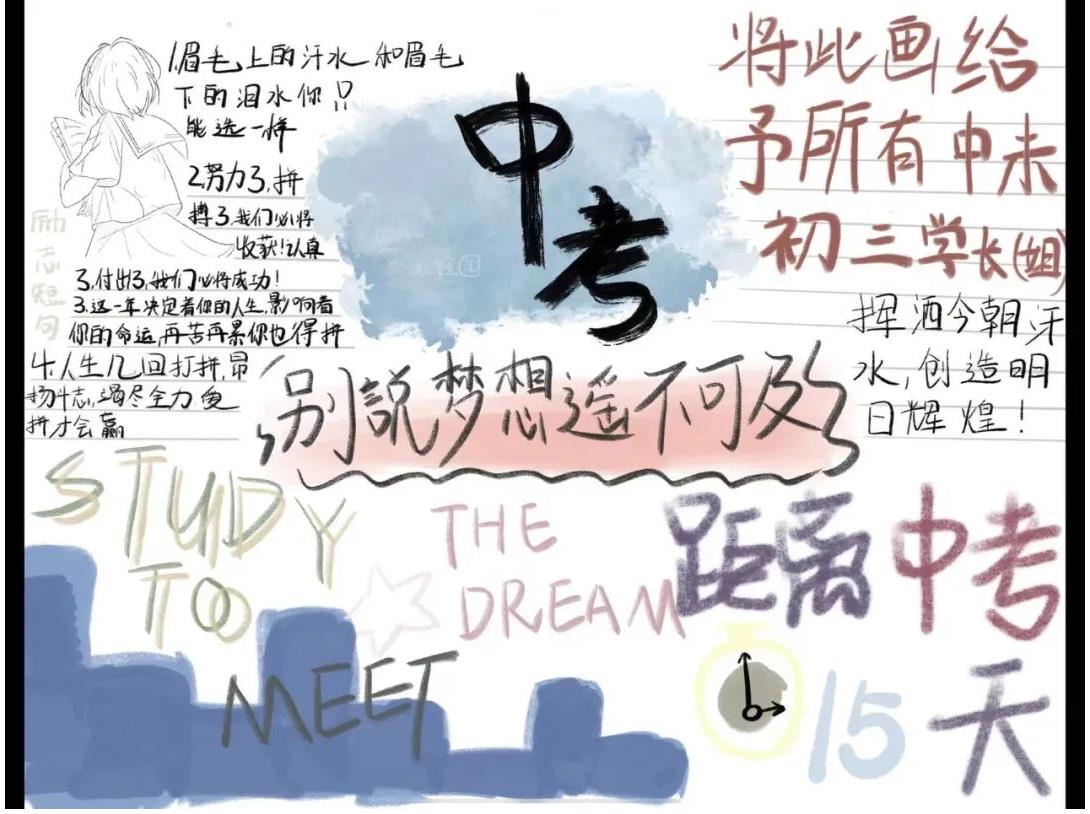 励志短句
1.眉毛上的汗水和眉毛
下的泪水你只
能选一样
2.努力了,拼
搏了,我们必将
收获!认真
3.付出了,我们必将成功!
3.这一年决定着你的人生,影响着
你的命运,再苦再累你也得拼
4.人生几回打拼,昂
扬斗志,竭尽全力
拼才会赢
中考
将此画给
予所有中未
初三学长(姐)
挥洒今朝汗
水,创造明
日辉煌!
别説梦想遥不可及
STUDY
TO
MEET
THE
DREAM
距离中考
15天